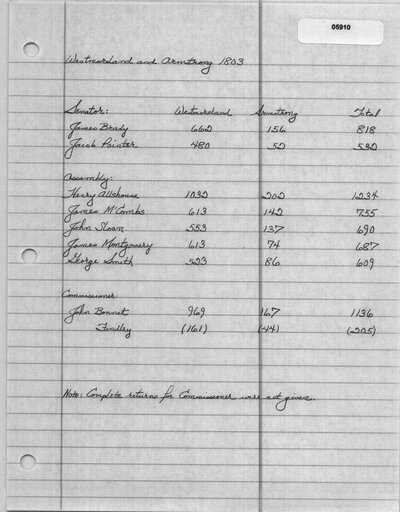 05910
Westmoreland and Armstrong 1803
Senator: Westmoreland Armstrong Total
James Brady 662 156 818
Jacob Painter 480 52 532
Assembly:
Henry Allshouse 1032 202 1234
James M'Combs 613 142 755
John Sloan 553 137 690
James Montgomery 613 74 687
George Smith 523 86 609
Commissioner:
John Bonnet 969 167 1136
Findley (161) (44) (205)
Note: Complete returns for Commissioner were not given.